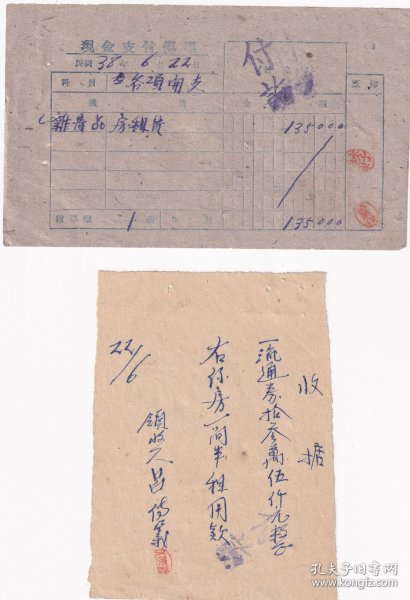 現金支付傳票
民國 38 年 6 月 22 日
付
科 目 各項開支
摘 要 金 額
雜費品 房租費 135000
附單據 1 張 合 計 135.000
收據
一流通券拾叁萬伍仟元整
右係房一間半租用款
領收人呂傳義
22/6
孔夫子旧书网